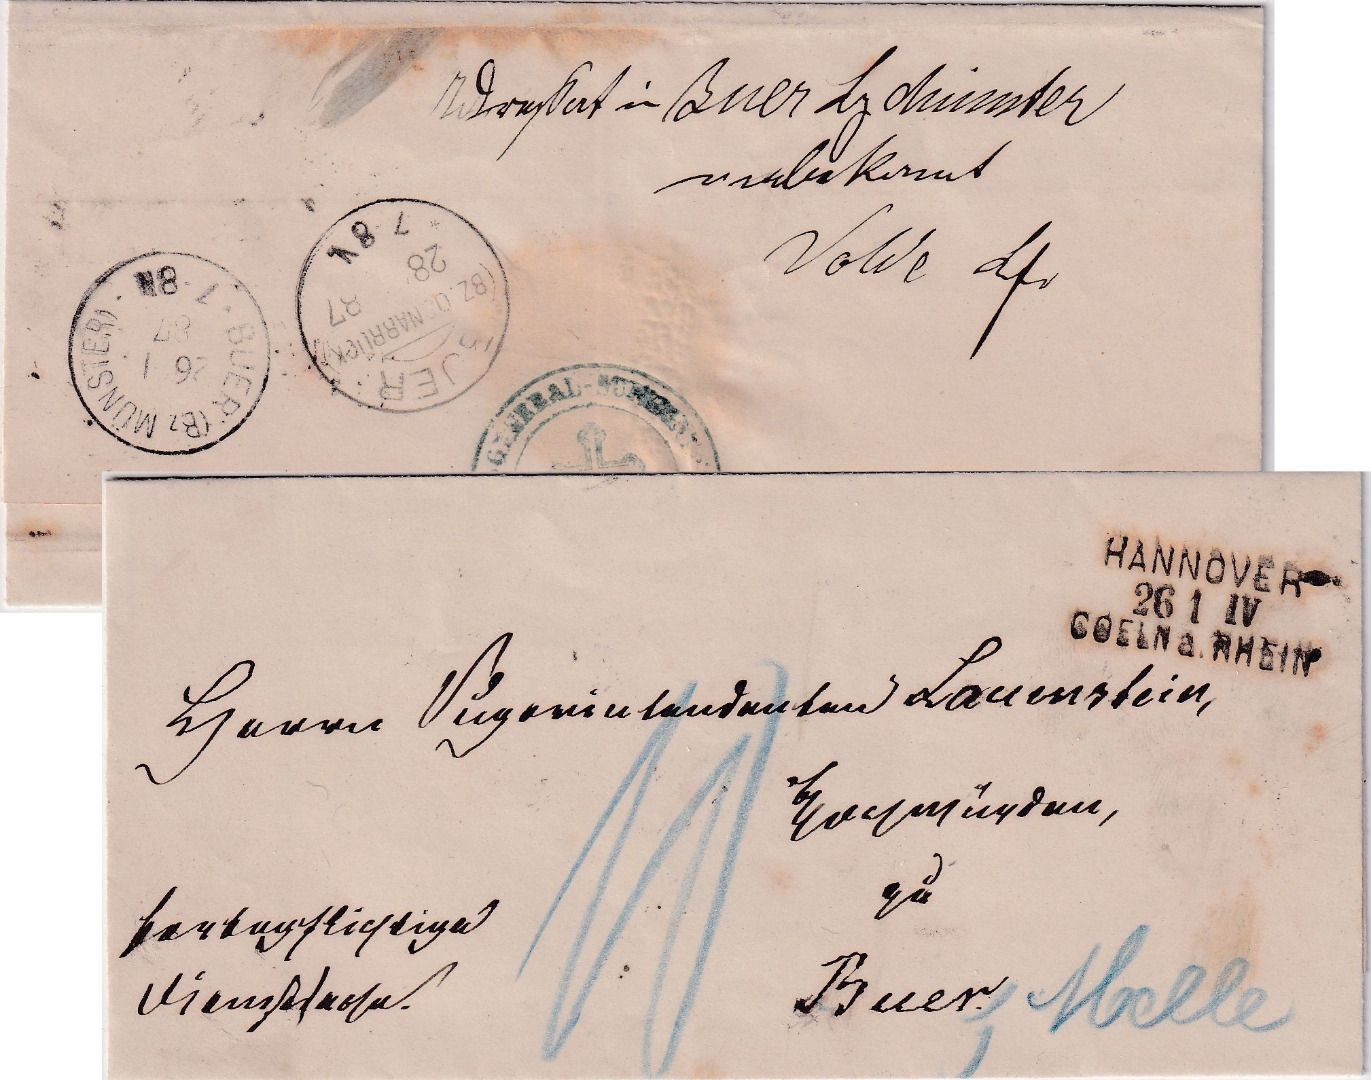 Adressat in Buer Bz Münster
unbekannt
Volde
7-8V
28
87
(BZ. OSNABRÜCK)
BUER
7-8N
26 1
87
BUER (Bz MÜNSTER)
GENERAL-SUPERINT
HANNOVER
26 1 IV
COELN a. RHEIN
Herrn Superintendenten Lauenstein,
Hochwürden,
zu
Buer.
portopflichtige
Dienstsache.
Melle